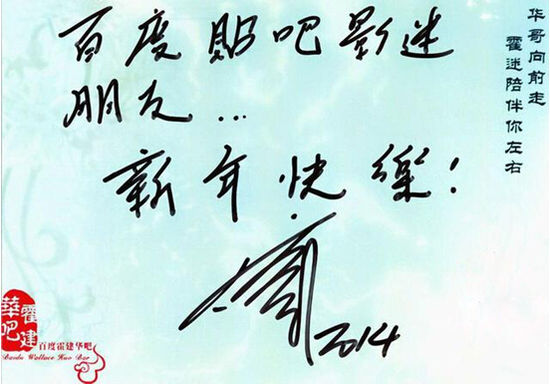 百度貼吧影迷
朋友...
新年快樂!
2014
华哥向前走
霍迷陪伴你左右
霍建
華吧
百度霍建华吧
Baidu Wallace Huo Bar